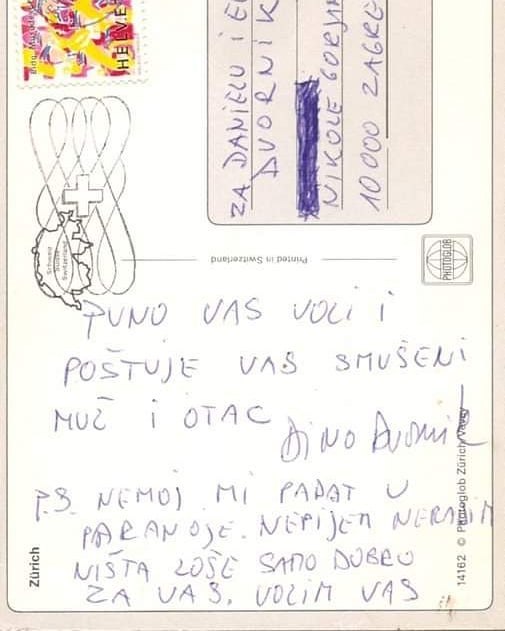 HELVE
ZA DANIELU I
DVORNIK
NIKOLE
10000 ZAGRE
Schweiz
Suisse
Switzerland
Printed in Switzerland
PHOTOGLOB
PUNO VAS VOLI I
POŠTUJE VAS SMUŠENI
MUŽ I OTAC
DINO DVORNIK
P.S. NEMOJ MI PADAT U
PARANOJE. NEPIJEM NERADIM
NIŠTA LOŠE SAMO DOBRO
ZA VAS. VOLIM VAS
Zürich
14162 © Photoglob Zürich/Vevey